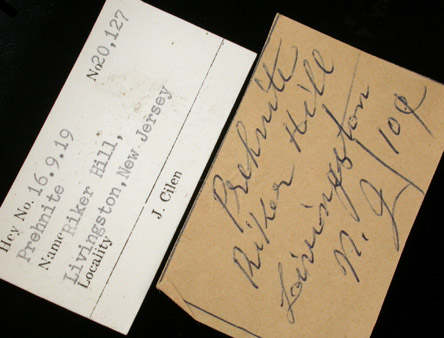 Hey No. 16.9.19 No20,127
Prehnite
NameRiker Hill,
Livingston, New Jersey
Locality
J. Cilen
Prehnite
Riker Hill
Livingston
N. J.